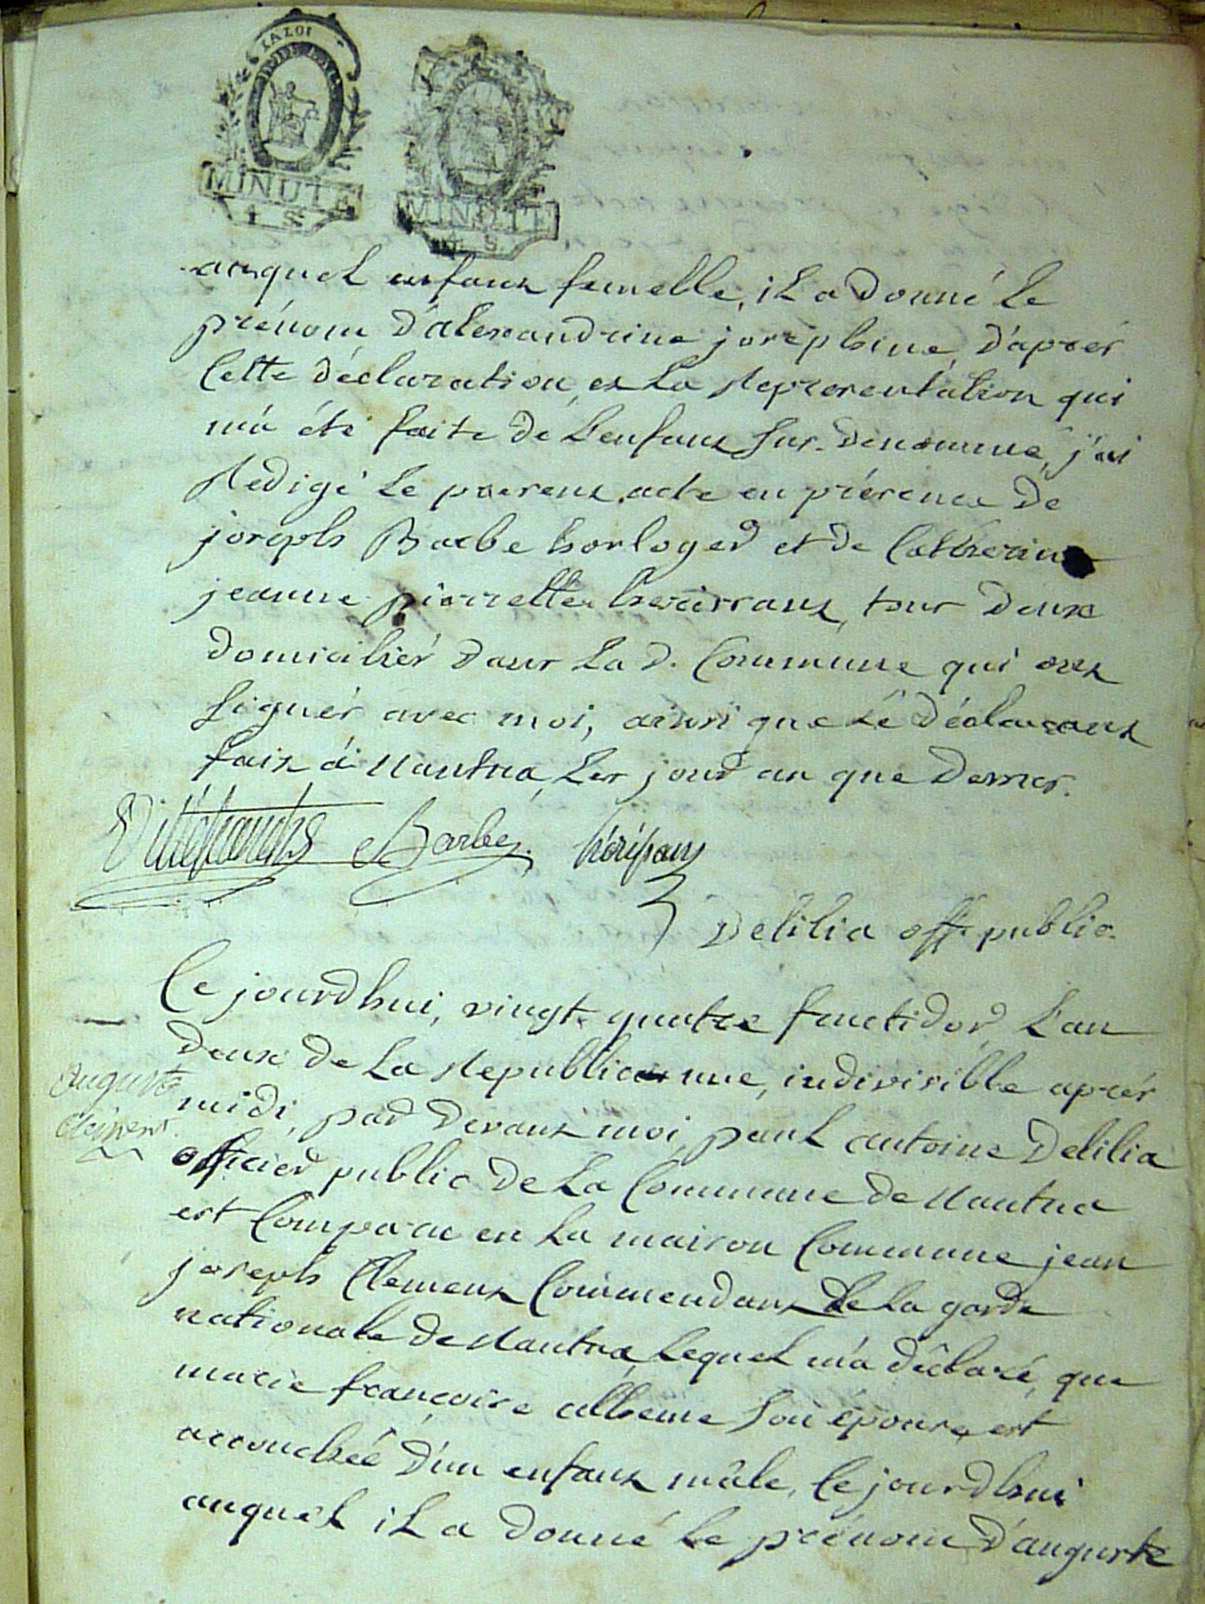 LA LOI
MINUTE
4. S.
MINUTE
4. S.
auquel enfant femelle, il a donné le
prénom d'alexandrine josephine, d'aprés
Cette déclaration, et la Representation qui
m'a été faite de L'enfant sus-denommé, j'ai
Redigé le present acte en présence de
joseph Barbe horloger et de Catherine
jeanne pierrette herissant, tous deux
domiciliés dans la d. Commune qui ont
signés avec moi, ainsi que le déclarant
fait à Nantua, les jour an que dessus.
Barbe, hérissant
Delilia off. public.
Ce jourdhui, vingt quatre fructidor, L'an
deux de la Republique une, indivisible aprés
auguste
midi, par devant moi, paul antoine Delilia
clément
officier public de la Commune de Nantua
est Comparu en la maison Commune jean
joseph Clement Commendant de la garde
nationale de Nantua, lequel m'a déclaré, que
marie françoise son épouse, est
accouchée d'un enfant mâle, Ce jourdhui
auquel il a donné le prénom d'auguste